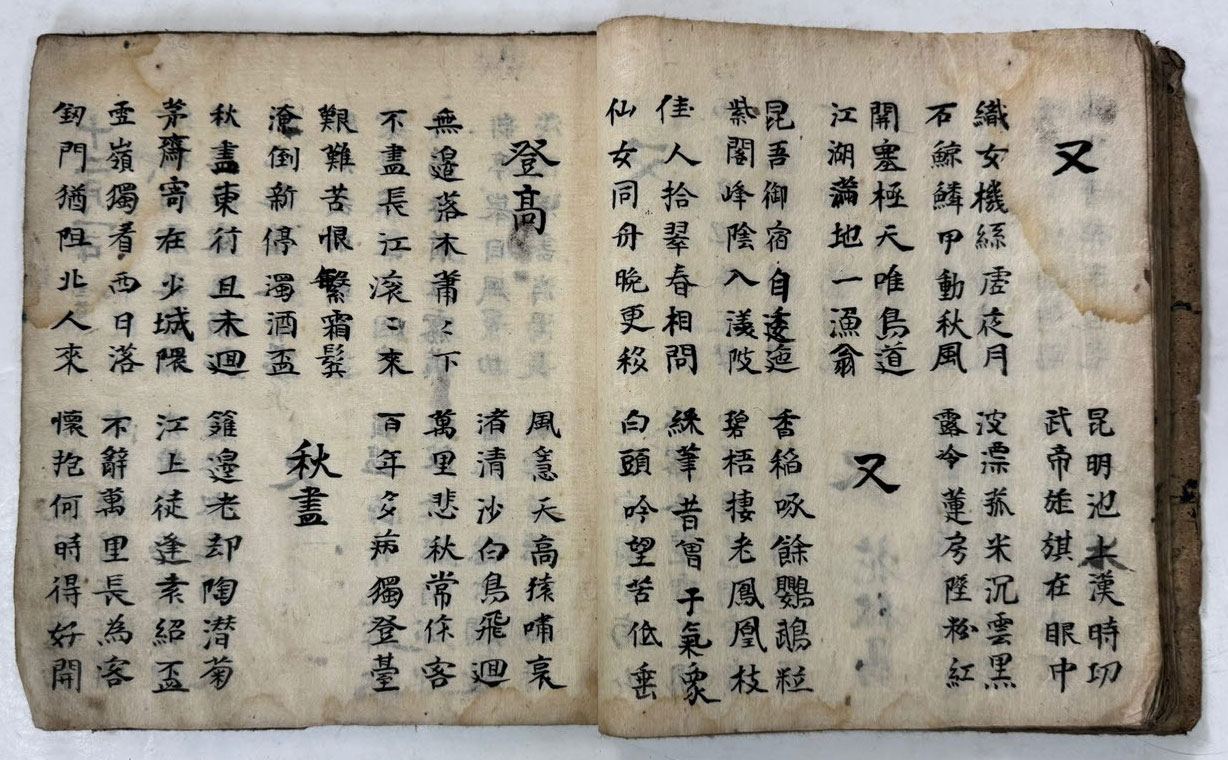 又
昆明池水漢時功
武帝旌旗在眼中
織女機絲虛夜月
石鯨鱗甲動秋風
波漂菰米沉雲黑
露冷蓮房墜粉紅
關塞極天唯鳥道
江湖滿地一漁翁
又
昆吾御宿自逶迤
紫閣峰陰入渼陂
香稻啄餘鸚鵡粒
碧梧棲老鳳凰枝
佳人拾翠春相問
仙女同舟晚更移
綵筆昔曾子氣象
白頭吟望苦低垂
登高
風急天高猿嘯哀
渚清沙白鳥飛迴
無邉落木蕭〻下
不盡長江滾〻來
萬里悲秋常作客
百年多病獨登臺
艱難苦恨繁霜鬂
潦倒新停濁酒盃
秋盡
秋盡東行且未迴
茅齋寄在少城隈
籬邊老却陶潜菊
江上徒逢袁紹盃
雪嶺獨看西日落
劒門猶阻北人來
不辭萬里長為客
懷抱何時得好開